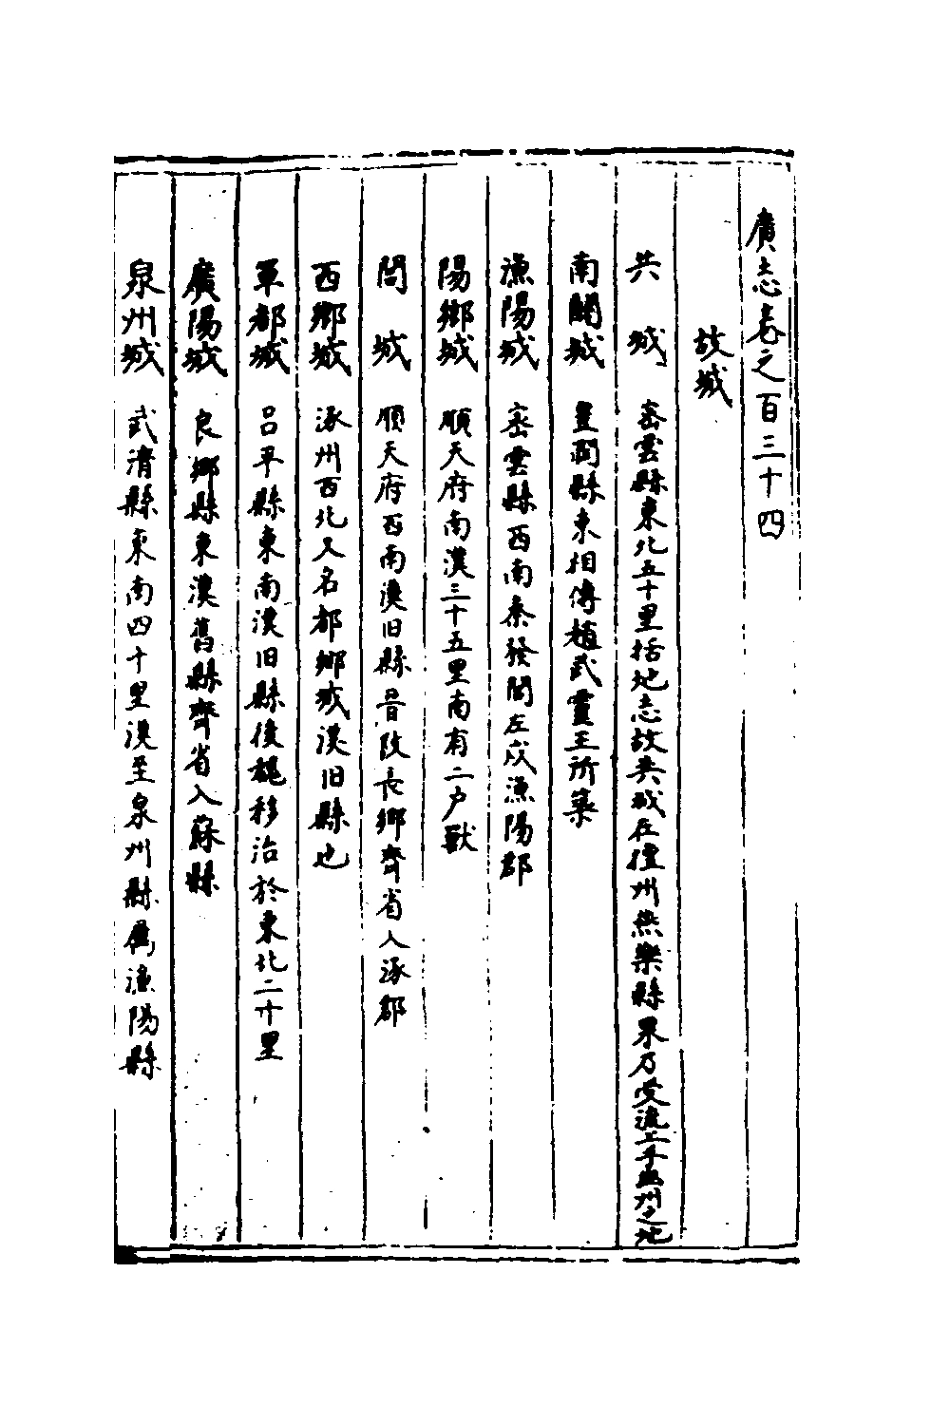 廣志卷之百三十四
故城
共城 密雲縣東北五十里括地志故共城在檀州燕樂縣界乃受流工于幽州之地
南關城 豊閏縣東相傳趙武靈王所築
漁陽城 密雲縣西南秦發閭左戍漁陽郡
陽鄉城 順天府南漢三十五里南有二户獸
閻城 順天府西南漢旧縣晉改長鄉齊省入涿郡
西鄉城 涿州西北又名都鄉城漢旧縣也
軍都城 昌平縣東南漢旧縣後魏移治於東北二十里
廣陽城 良鄉縣東漢舊縣齊省入蘇縣
泉州城 武清縣東南四十里漢至泉州縣屬漁陽縣